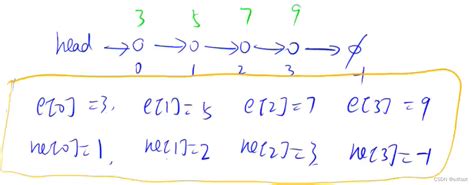 3 5 7 9
head → 0 → 0 → 0 → 0 → ∅
0 1 2 3 -1
e[0] = 3, e[1] = 5 e[2] = 7 e[3] = 9
ne[0] = 1, ne[1] = 2 ne[2] = 3, ne[3] = -1